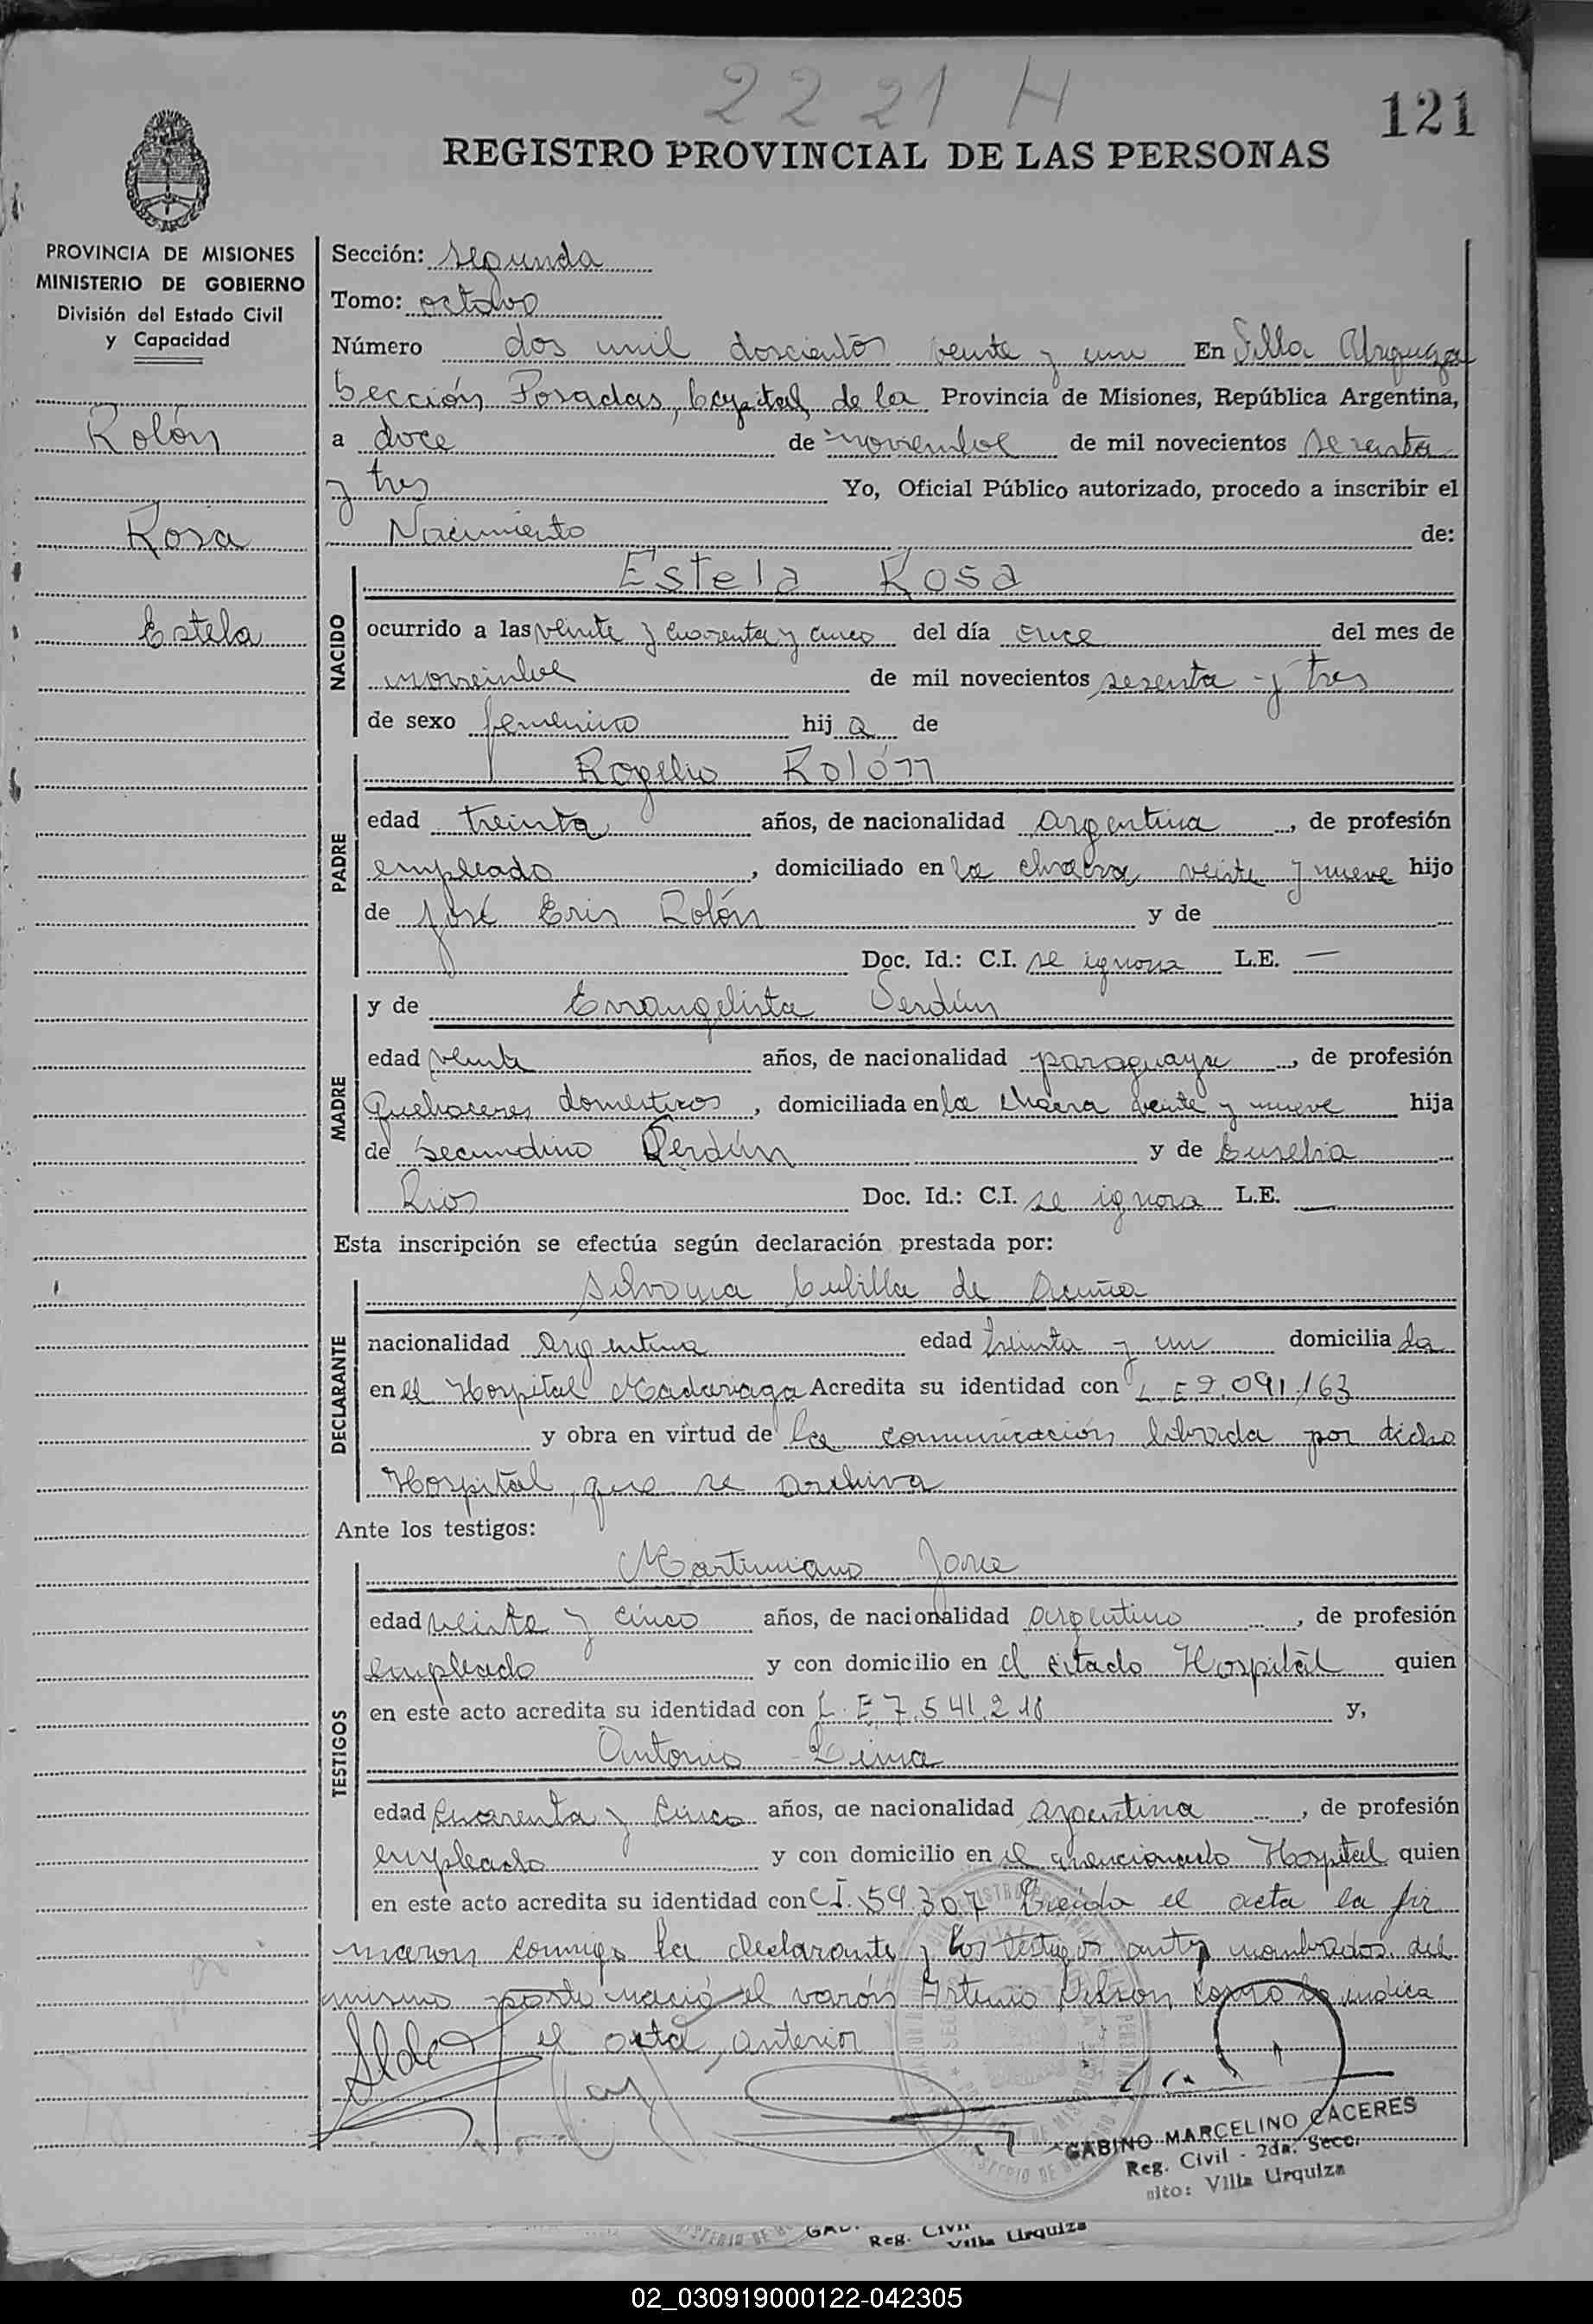 2221 H
121
REGISTRO PROVINCIAL DE LAS PERSONAS
PROVINCIA DE MISIONES
MINISTERIO DE GOBIERNO
División del Estado Civil
y Capacidad
Rolón
Rosa
Estela
Sección: segunda
Tomo: octavo
Número dos mil doscientos veinte y uno En Villa Urquiza
Sección Posadas, Capital de la Provincia de Misiones, República Argentina,
a doce de noviembre de mil novecientos sesenta
y tres Yo, Oficial Público autorizado, procedo a inscribir el
Nacimiento de:
NACIDO
Estela Rosa
ocurrido a las veinte y cuarenta y cinco del día once del mes de
noviembre de mil novecientos sesenta y tres
de sexo femenino hija de
PADRE
Rogelio Rolón
edad treinta años, de nacionalidad argentina, de profesión
empleado, domiciliado en la chacra veinte y nueve hijo
de José Rolón y de
Doc. Id.: C.I. se ignora L.E. —
MADRE
y de Evangelista Verdún
edad veinte años, de nacionalidad paraguaya, de profesión
Quehaceres domesticos, domiciliada en la chacra veinte y nueve hija
de Secundino Verdún y de
Rios Doc. Id.: C.I. se ignora L.E. —
Esta inscripción se efectúa según declaración prestada por:
DECLARANTE
Cubilla de Acuña
nacionalidad argentina edad treinta y un domiciliada
en el Hospital Madariaga Acredita su identidad con L E 2.091.163
y obra en virtud de la comunicación librada por dicho
Hospital, que se archiva
Ante los testigos:
TESTIGOS
Martiniano
edad veinte y cinco años, de nacionalidad argentino, de profesión
empleado y con domicilio en el citado Hospital quien
en este acto acredita su identidad con L. E 7.541.218 y,
Antonio
edad cuarenta y cinco años, de nacionalidad argentina, de profesión
empleado y con domicilio en el mencionado Hospital quien
en este acto acredita su identidad con C.I. 59.307 Leida el acta la fir
maron conmigo la declarante y los testigos antes nombrados. del
mismo parto nació el varón Artemio Nelson como lo indica
el acta, anterior
GABINO MARCELINO CACERES
Reg. Civil - 2da. Secc.
sito: Villa Urquiza
Reg. Civil
Villa Urquiza
02_030919000122-042305